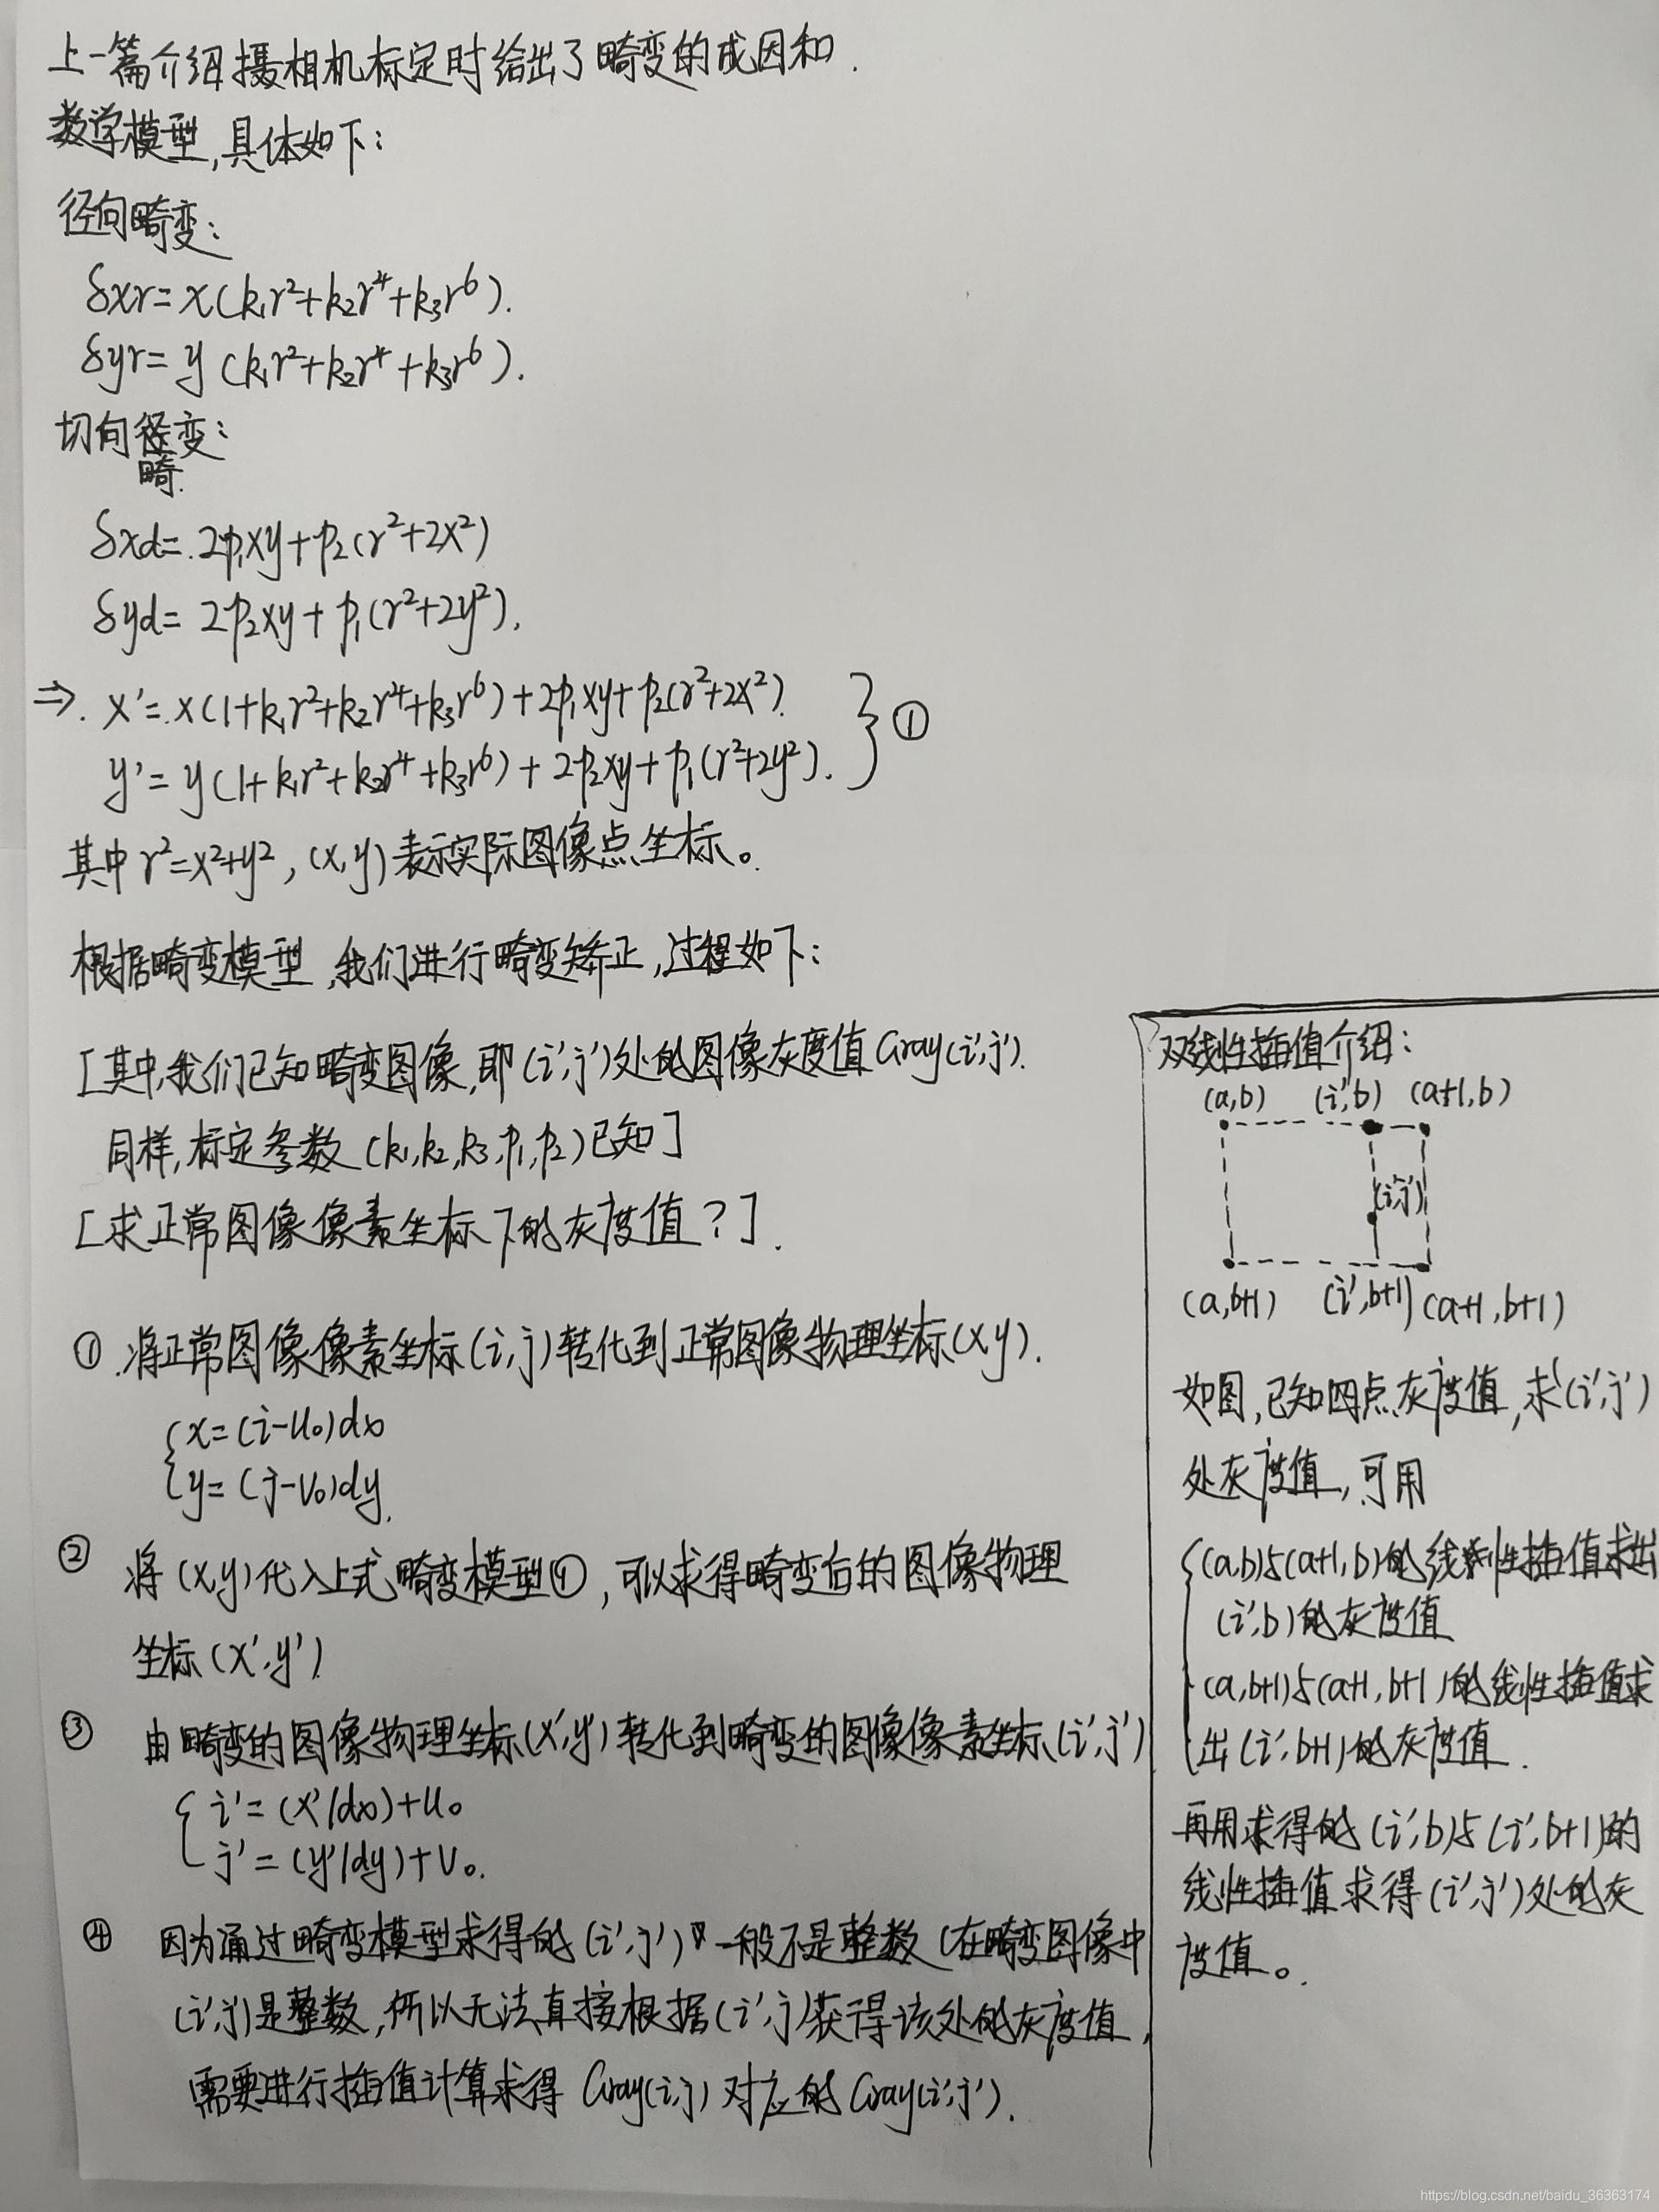 上一篇介绍摄相机标定时给出了畸变的成因和.
数学模型,具体如下:
径向畸变:
δxr=x(k₁r²+k₂r⁴+k₃r⁶).
δyr=y(k₁r²+k₂r⁴+k₃r⁶).
切向径变:
畸.
δxd=.2p₁xy+p₂(r²+2x²)
δyd=2p₂xy+p₁(r²+2y²).
⇒. x'=.x(1+k₁r²+k₂r⁴+k₃r⁶)+2p₁xy+p₂(r²+2x²). } ①
y'=y(1+k₁r²+k₂r⁴+k₃r⁶)+2p₂xy+p₁(r²+2y²).
其中r²=x²+y²,(x,y)表示实际图像点坐标。
根据畸变模型,我们进行畸变矫正,过程如下:
[其中,我们已知畸变图像,即(i',j')处的图像灰度值Gray(i',j').
同样,标定参数(k₁,k₂,k₃,p₁,p₂)已知]
[求正常图像像素坐标下的灰度值?].
① .将正常图像像素坐标(i,j)转化到正常图像物理坐标(x,y).
{x=(i-u₀)dx
y=(j-v₀)dy.
② 将(x,y)代入上式畸变模型①,可以求得畸变后的图像物理
坐标(x',y')
③ 由畸变的图像物理坐标(x',y')转化到畸变的图像像素坐标(i',j')
{i'=(x'/dx)+u₀
j'=(y'/dy)+v₀.
④ 因为通过畸变模型求得的(i',j')一般不是整数(在畸变图像中
(i',j')是整数,所以无法直接根据(i',j')获得该处的灰度值,
需要进行插值计算求得 Gray(i,j) 对应的 Gray(i',j').
双线性插值介绍:
(a,b) (i',b) (a+1,b)
(i',j')
(a,b+1) (i',b+1) (a+1,b+1)
如图,已知四点灰度值,求(i',j')
处灰度值,可用
{(a,b)与(a+1,b)的线性插值求出
(i',b)的灰度值
(a,b+1)与(a+1,b+1)的线性插值求
出(i',b+1)的灰度值.
再用求得的(i',b)与(i',b+1)的
线性插值求得(i',j')处的灰
度值。.
https://blog.csdn.net/baidu_36363174